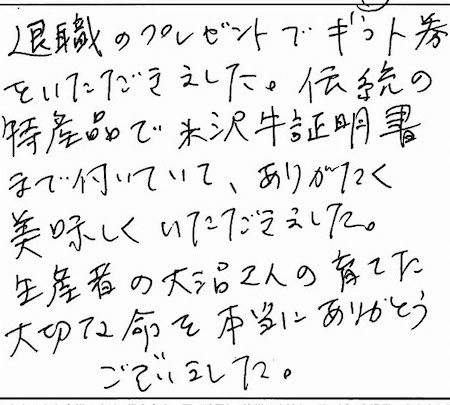 退職のプレゼントでギフト券
をいただきました。伝統の
特産品で米沢牛証明書
まで付いていて、ありがたく
美味しくいただきました。
生産者の大沼さんの育てた
大切な命を本当にありがとう
ございました。